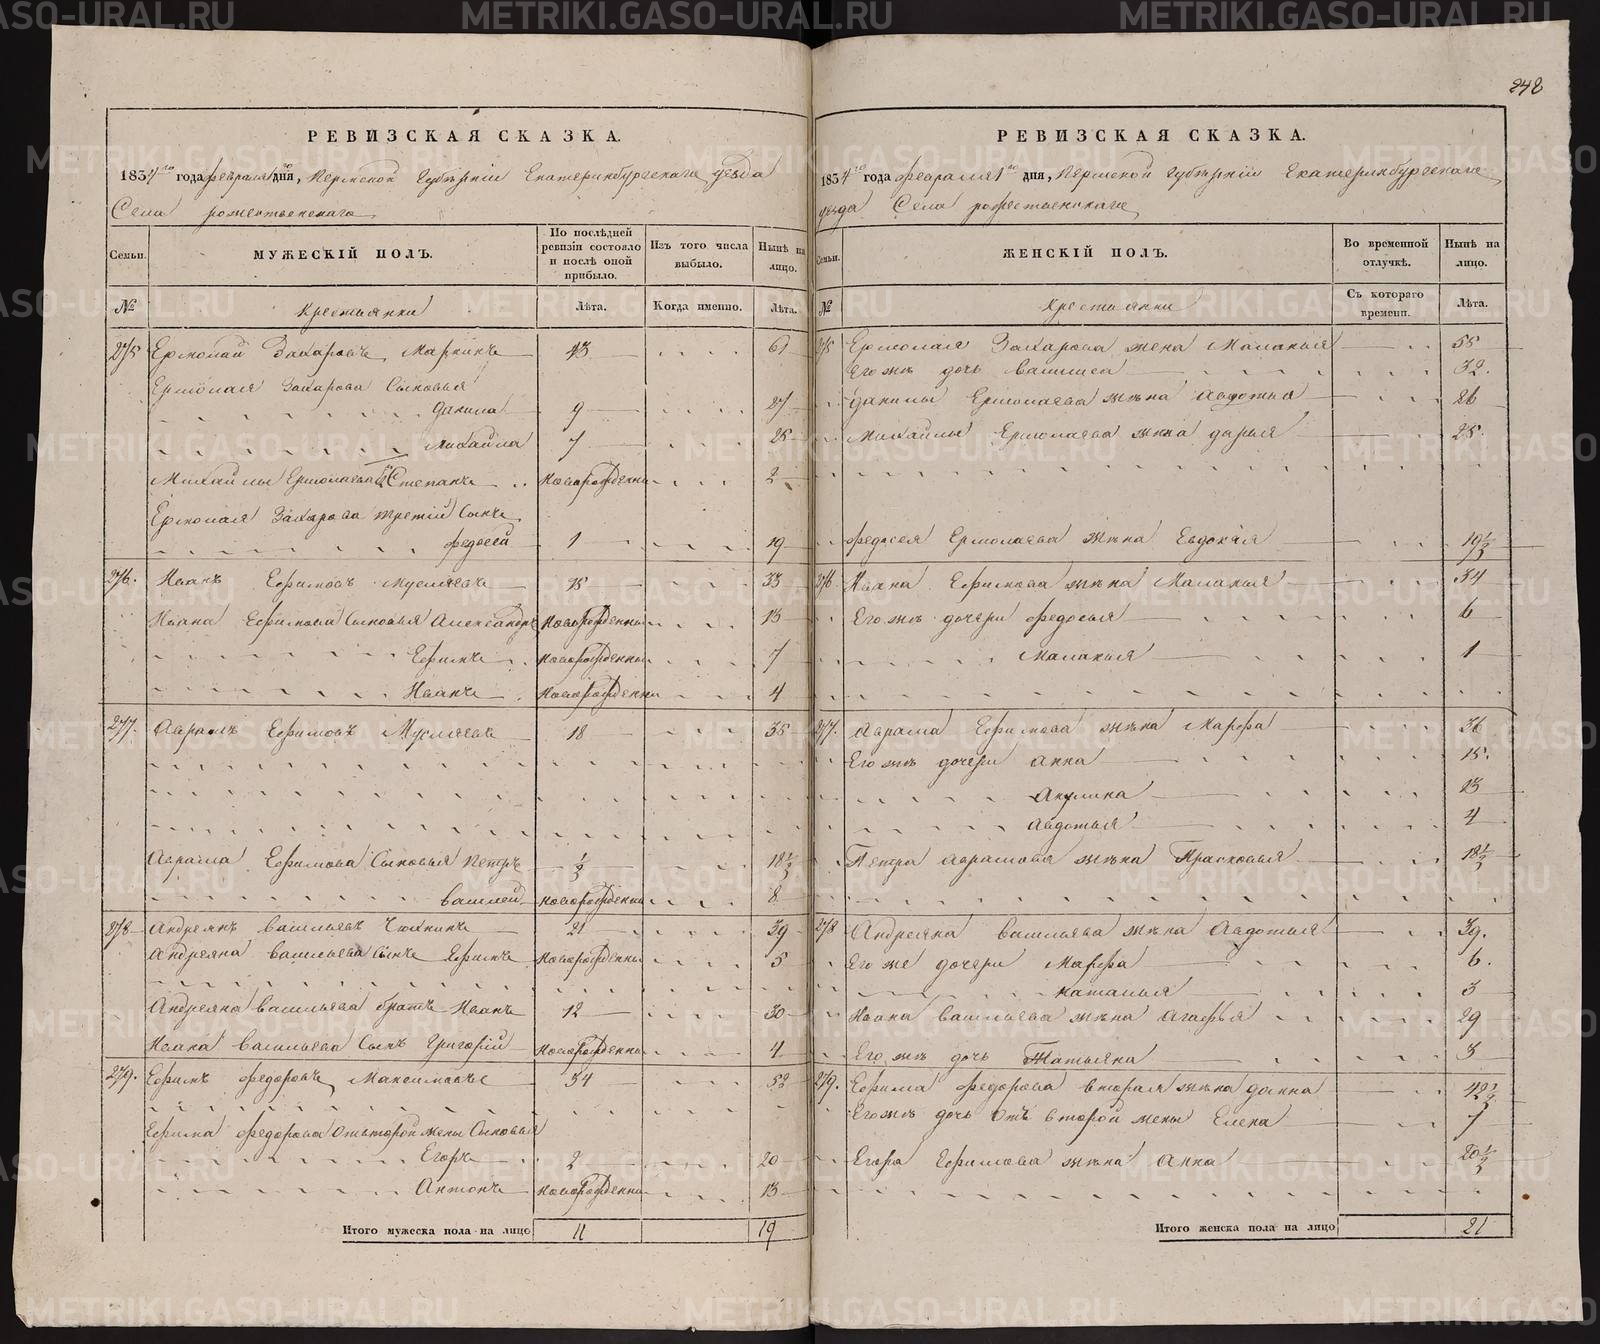 242
РЕВИЗСКАЯ СКАЗКА.
1834го года февраля 1го дня, Пермской Губѣрніи Екатеринбургскаго уѣзда
Села рожественскаго
Семьи. МУЖЕСКІЙ ПОЛЪ. По послѣдней ревизіи состояло и послѣ оной прибыло. Изъ того числа выбыло. Нынѣ на лицо.
№ Крестьянки Лѣта. Когда именно. Лѣта.
275 Ермолай Захаровъ Маркинъ 43 61
Ермолая Захарова Сыновья
данила 9 27
михайла 7 25
Михайлы Ермолаева Степанъ новорожденны 2
Ермолая Захарова третій Сынъ
федосей 1 19
276. Иванъ Ефимовъ Мусляевъ 15 33
Ивана Ефимова Сыновья Александръ новорожденны 13
Ефимъ новорожденны 7
Иванъ новорожденны 4
277. Аврамъ Ефимовъ Мусляевъ 18 35
Аврама Ефимова Сыновья Петръ ½ 18½
василей новорожденны 8
278 Андреянъ васильевъ 21 39
Андреяна васильева Сынъ Ефимъ новорожденны 5
Андреяна васильева братъ Иванъ 12 30
Ивана васильева Сынъ Григорій новорожденны 4
279. Ефимъ федоровъ Максимовъ 34 52
Ефима федорова отвторой жены Сыновья
Егоръ 2 20
Антонъ новорожденны 13
Итого мужеска пола на лицо 11 19
РЕВИЗСКАЯ СКАЗКА.
1834го года февраля 1го дня, Пермской Губѣрніи Екатеринбургскаго
уѣзда Села рожественскаго
Семьи. ЖЕНСКІЙ ПОЛЪ. Во временной отлучкѣ. Нынѣ на лицо.
№ Крестьянки Съ котораго времени. Лѣта.
275 Ермолая Захарова жена Маланья 55
Его жъ дочь василиса 32.
данилы Ермолаева жѣна Авдотья 26
Михайлы Ермолаева жѣна дарья 25.
федосея Ермолаева жѣна Евдокія 19½
276 Ивана Ефимова жѣна Маланья 34
Его жъ дочери федосья 6
Маланья 1
277. Аврама Ефимова жѣна Марфа 36
Его жъ дочери анна 15.
Акулина 13
авдотья 4
Петра аврамова жѣна Прасковья 18½
278 Андреяна васильева жѣна Авдотья 39.
Его же дочери Марфа 6.
наталья 3
Ивана васильева жѣна агафья 29
Его жъ дочь Татьяна 3
279. Ефима федорова вторая жѣна 42½
Его жъ дочь отъ второй жены Елена 7
Егора Ефимова жѣна анна 20½
Итого женска пола на лицо 21
METRIKI.GASO-URAL.RU